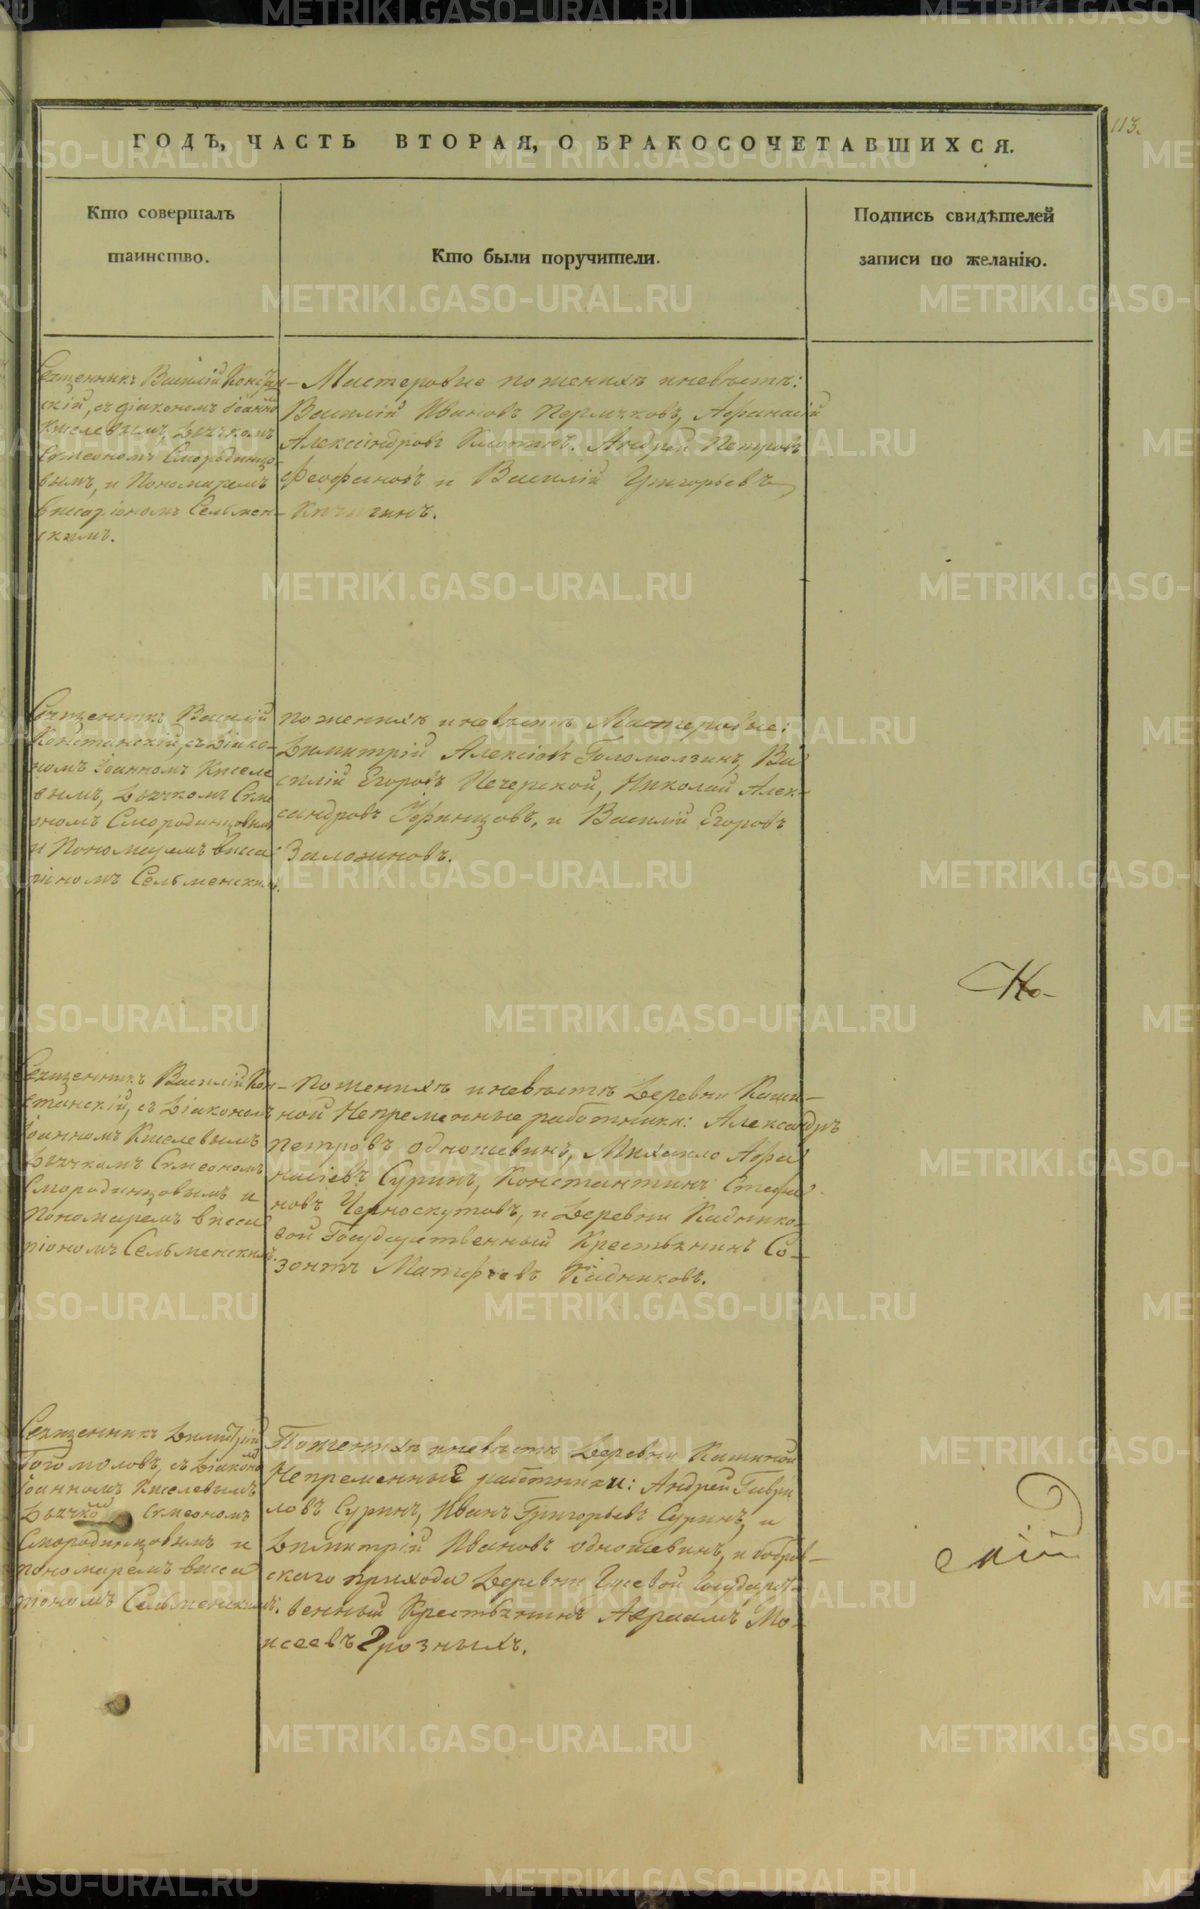 113.
ГОДЪ, ЧАСТЬ ВТОРАЯ, О БРАКОСОЧЕТАВШИХСЯ.
Кто совершалъ
таинство.
Кто были поручители.
Подпись свидѣтелей
записи по желанію.
Священникъ Василій Констан-
скій, съ діакономъ Іоанно
Киселевымъ, Дьячкомъ
Симеономъ Смородинцо
вымъ, и Пономаремъ
Виссаріономъ Сельмен-
скимъ.
Мастеровые по женихѣ и невѣстѣ:
Василій Ивановъ Пермяковъ, Афанасій
Александровъ Андрей Петровъ
Феофановъ и Василій Григорьевъ
Кичигинъ.
Священникъ Василій
Констанскій, съ Діако-
номъ Іоанномъ Киселе
вымъ, Дьячкомъ Симе
ономъ Смородинцовымъ
и Пономаремъ Висса
ріономъ Сельменскимъ.
по женихѣ и невѣстѣ Мастеровые:
Димитрій Алексіевъ Голомолзинъ, Ва
силій Егоровъ Печерской, Николай Алек-
сандровъ Уфинцовъ, и Василій Егоровъ
Заложиновъ.
Священникъ Василій Кон-
станскій, съ Діакономъ
Іоанномъ Киселевымъ
Дьячкомъ Симеономъ
Смородинцовымъ и
Пономаремъ Висса
ріономъ Сельменскимъ.
По женихѣ и невѣстѣ Деревни Каши-
ной Непременные работники: Александръ
Петровъ Одношевинъ, Михаило Афа
насіевъ Суринъ, Константинъ Стефа
новъ Черноскутовъ, и Деревни Кадников-
вой Государственный Крестьянинъ Со-
зонтъ Матфеевъ Кадниковъ.
Священникъ Димитрій
Богомоловъ, съ Діакономъ
Іоанномъ Киселевымъ
Дьячкомъ Симеономъ
Смородинцовымъ и
пономаремъ Висса
ріономъ Сельменскимъ.
По женихѣ и невѣстѣ Деревни Кашиной
Непременные работники: Андрей Гаври
ловъ Суринъ, Иванъ Григорьевъ Суринъ, и
Димитрій Ивановъ Одношевинъ, и Бобров-
скаго прихода Деревни Гусевой Государст-
венный Крестьянинъ Авраамъ Мо-
исеевъ Грозныхъ.
Ко-
скій